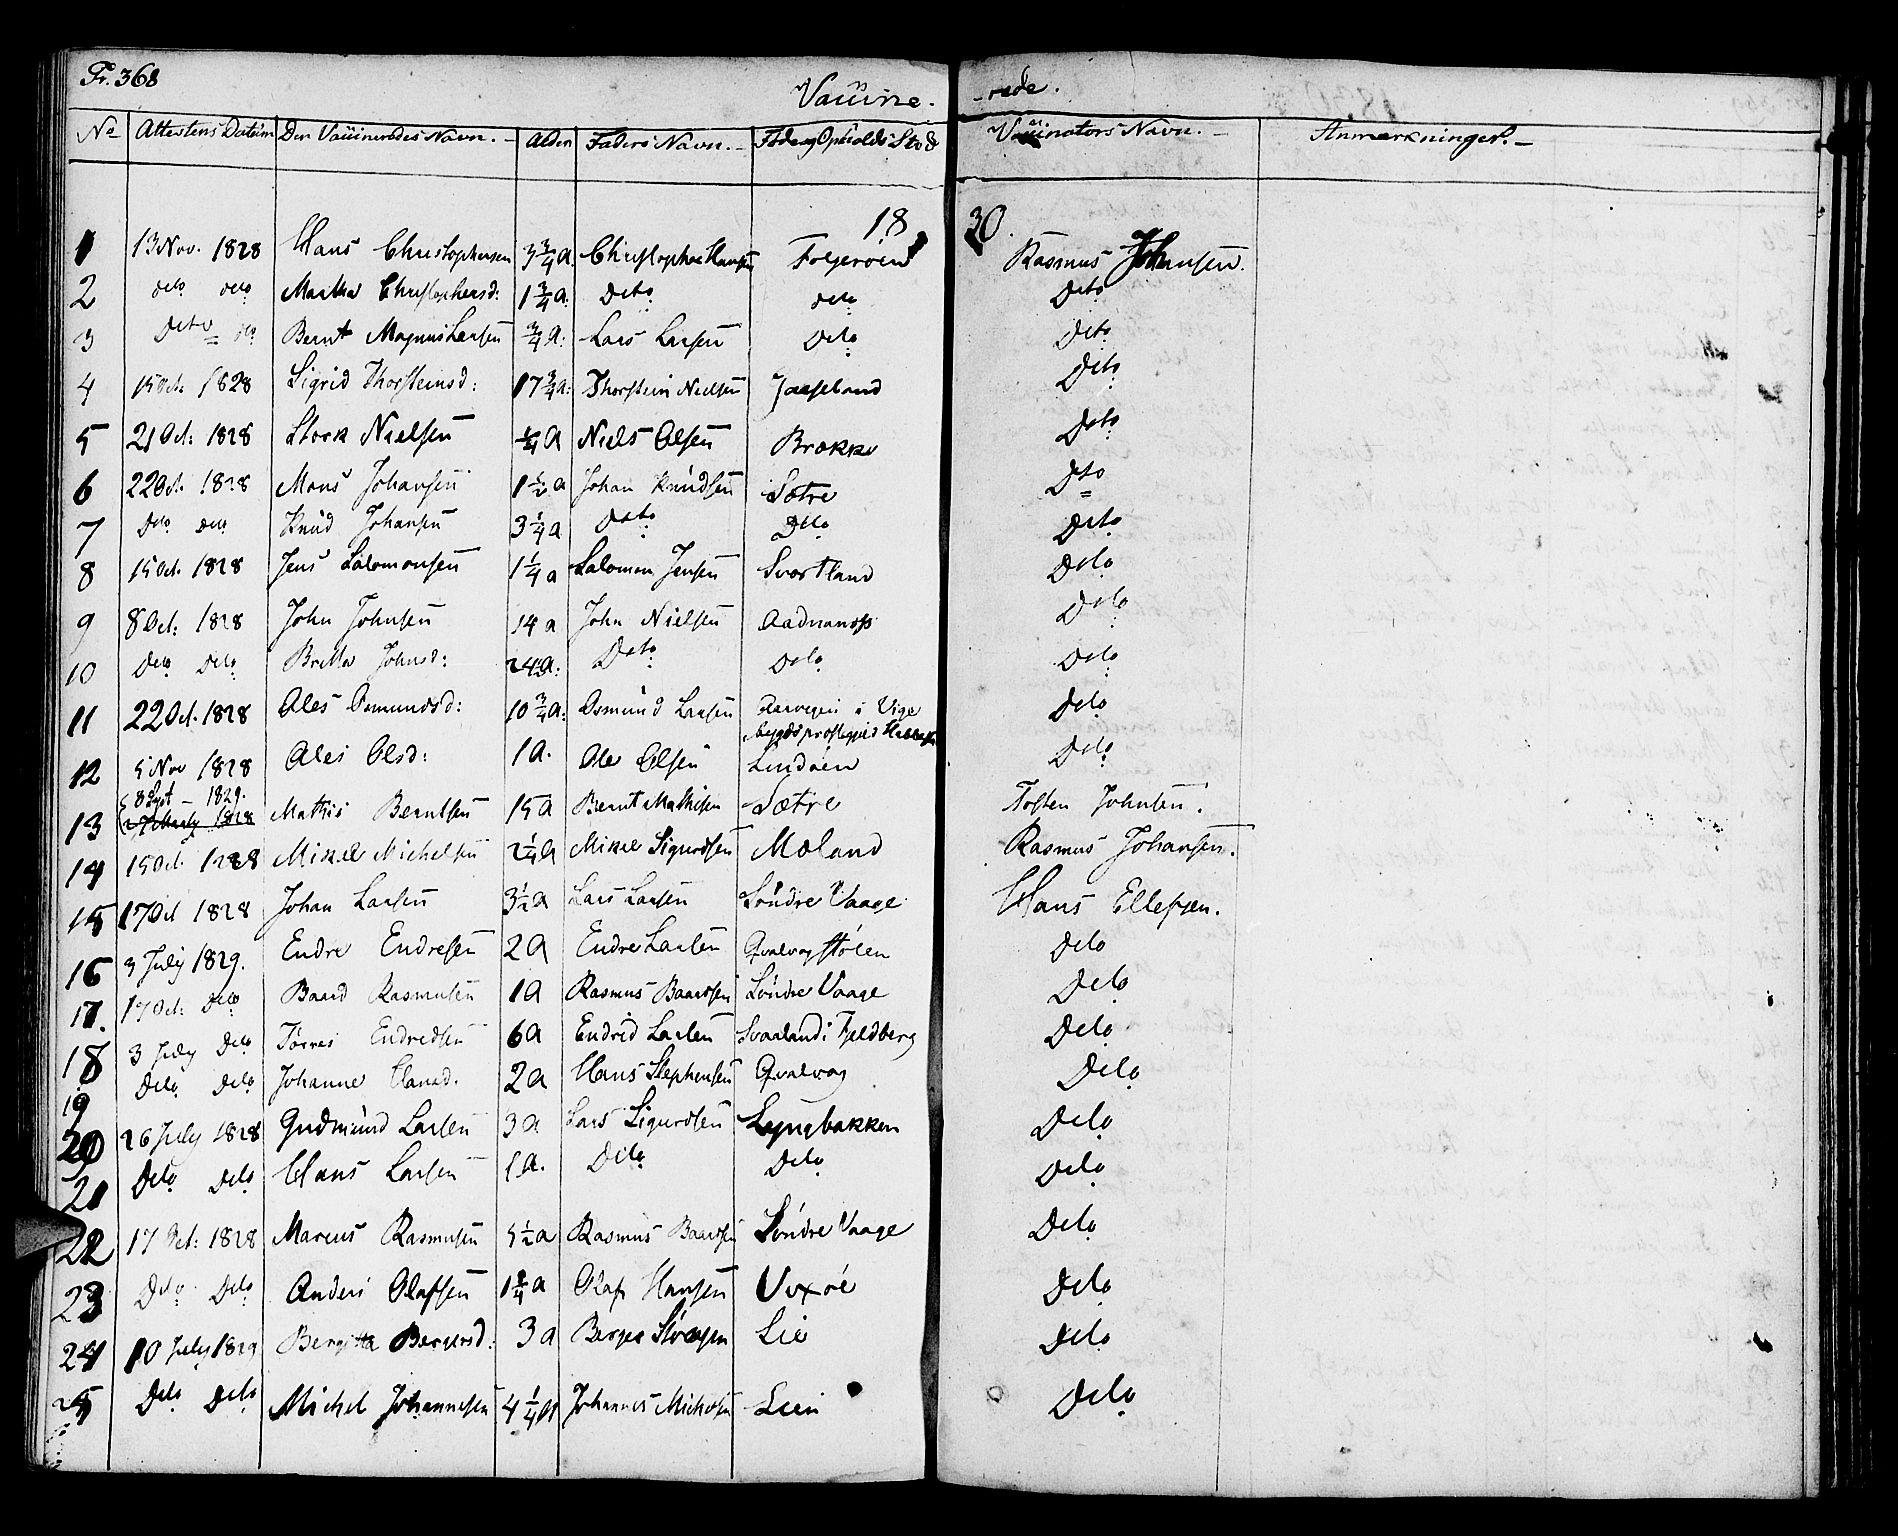 Fr. 368
Vaccine. -rede.
No Attestens Datum Den Vaccineredes Navn. Alder Faders Navn. Føde og Opholds Sted Vaccinators Navn. Anmærkninger.
1830.
1 13 Nov. 1828 Hans Christophersen 3 3/4 a. Christopher Hansen Folgeröen Rasmus Johansen.
2 deto deto Martha Christophersd: 1 3/4 a: Deto deto Deto
3 Deto deto Bernt Magnus Larsen 3/4 a: Lars Larsen Deto Deto
4 15 Oct. 1828 Sigrid Thorsteinsd: 17 3/4 a: Thorstein Nielsen Deto
5 21 Oct: 1828 Stork Nielsen 1/4 a Niels Olsen Brække Deto
6 22 Oct. 1828 Mons Johansen 1 1/2 a Johan Knudsen Sætre Deto
7 Deto deto Knud Johansen 3 1/4 a Deto Deto Deto
8 15 Oct. 1828 Jens Salomonsen 1 1/4 a Salomon Jensen Svortland Deto
9 8 Oct: 1828 John Johnsen 14 a John Nielsen Aadnanæs Deto
10 Deto Deto Britha Johnsd: 24 a: Deto Deto Deto
11 22 Oct. 1828 Ales Osmundsd: 10 3/4 a: Osmund Larsen i Vige Deto
12 5 Nov 1828 Ales Olsd: 1 a. Ole Olsen Lindöen Deto
8 Sept - 1829.
13 1828 Mathis Berntsen 15 a Bernt Mathisen Sætre Tosten Johnsen.
14 15 Oct. 1828 Mikel Michelsen 2 1/4 a Mikel Sigurdsen Mæland Rasmus Johansen.
15 17 Oct 1828 Johan Larsen 3 1/2 a Lars Larsen Söndre Vaage Hans Ellefsen.
16 3 July 1829. Endre Endresen 2 a Endre Larsen Qvalvogstölen Deto
17. 17 Oct: Deto Baard Rasmusen 1 a Rasmus Baardsen Söndre Vaage Deto
18 3 July Deto Törres Endredsen 6 a Endred Larsen Svaaland i Fjeldberg Deto
19 Deto Deto Johanne Hansd. 2 a Hans Stephensen Qvalvog Deto
20 26 July 1828 Gudmund Larsen 3 a Lars Sigurdsen Lyngbakken Deto
21 Deto Deto Hans Larsen 1 a. Deto Deto Deto
22 17 Oct: 1828 Marcus Rasmusen 5 1/2 a Rasmus Baardsen Söndre Vaage Deto
23 Deto Deto Anders Olafsen 1 1/4 a Olaf Hansen Voxöe Deto
24 10 July 1829 Bergitta Bergersd: 3 a Berger Lie Deto
25 Deto Deto Michel Johannesen 4 1/4 a Johannes Michelsen Lien Deto